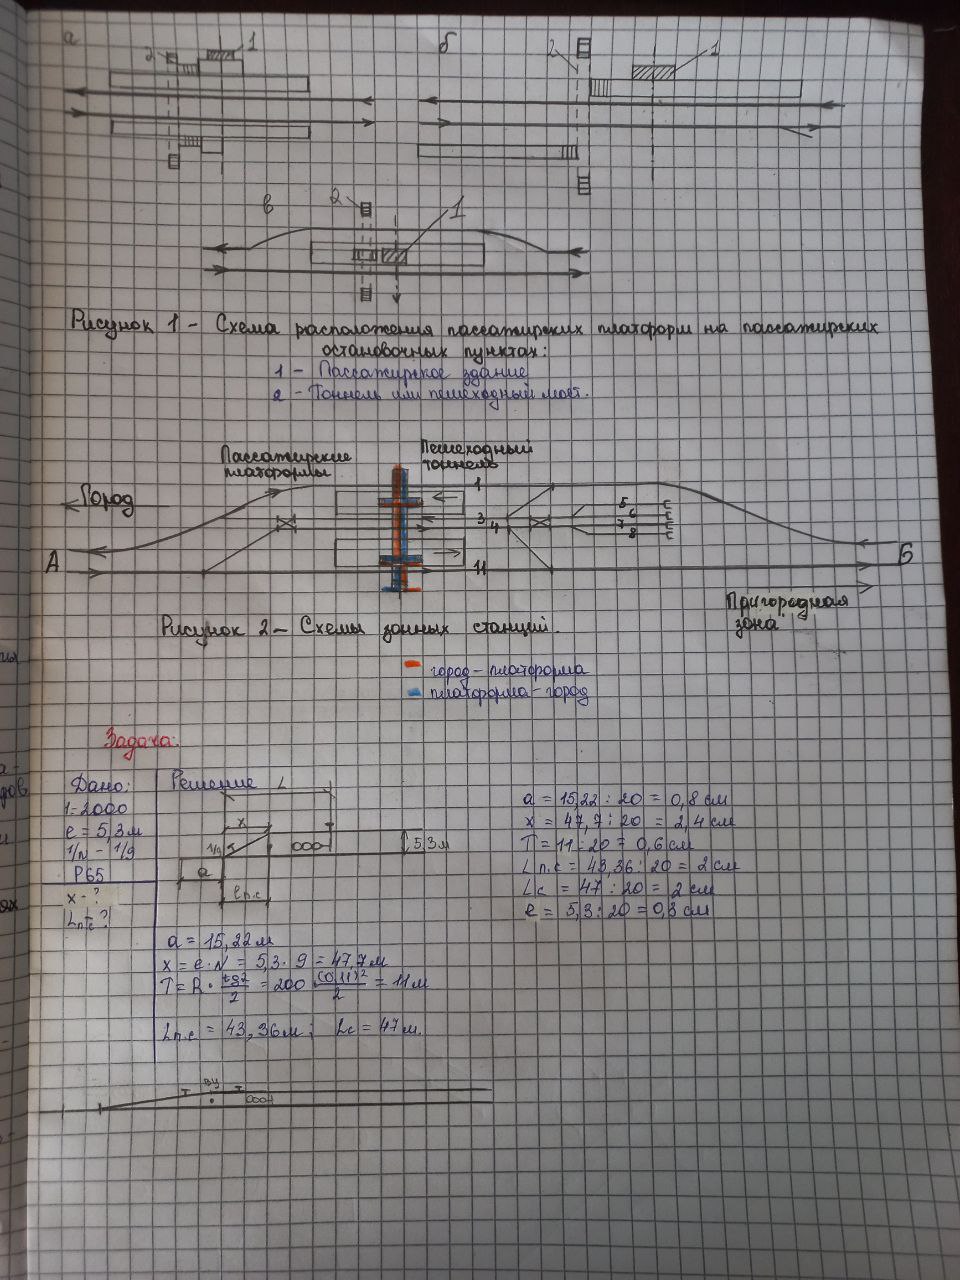 а
2
1
б
2
1
в
2
1
Рисунок 1 - Схема расположения пассажирских платформ на пассажирских
остановочных пунктах:
1 - Пассажирское здание
2 - Тоннель или пешеходный мост.
Пассажирские
платформы
Пешеходный
тоннель
Город
1
3
4
11
5
6
7
8
А
Б
Пригородная
зона
Рисунок 2 - Схемы зонных станций.
город - платформа
платформа - город
Задача:
Дано:
1:2000
e = 5,3м
1/N - 1/9
Р65
x - ?
Lп.с ?
Решение
L
x
1/9
a
lп.с
5,3м
a = 15,22 м
x = e · N = 5,3 · 9 = 47,7м
T = R · tg2/2 = 200 · (0,11)²/2 = 11м
Lп.с = 43,36м; Lс = 47м.
a = 15,22 : 20 = 0,8 см
x = 47,7 : 20 = 2,4 см
T = 11 : 20 = 0,6 см
Lп.с = 43,36 : 20 = 2 см
Lс = 47 : 20 = 2 см
e = 5,3 : 20 = 0,3 см
T
ВУ
T